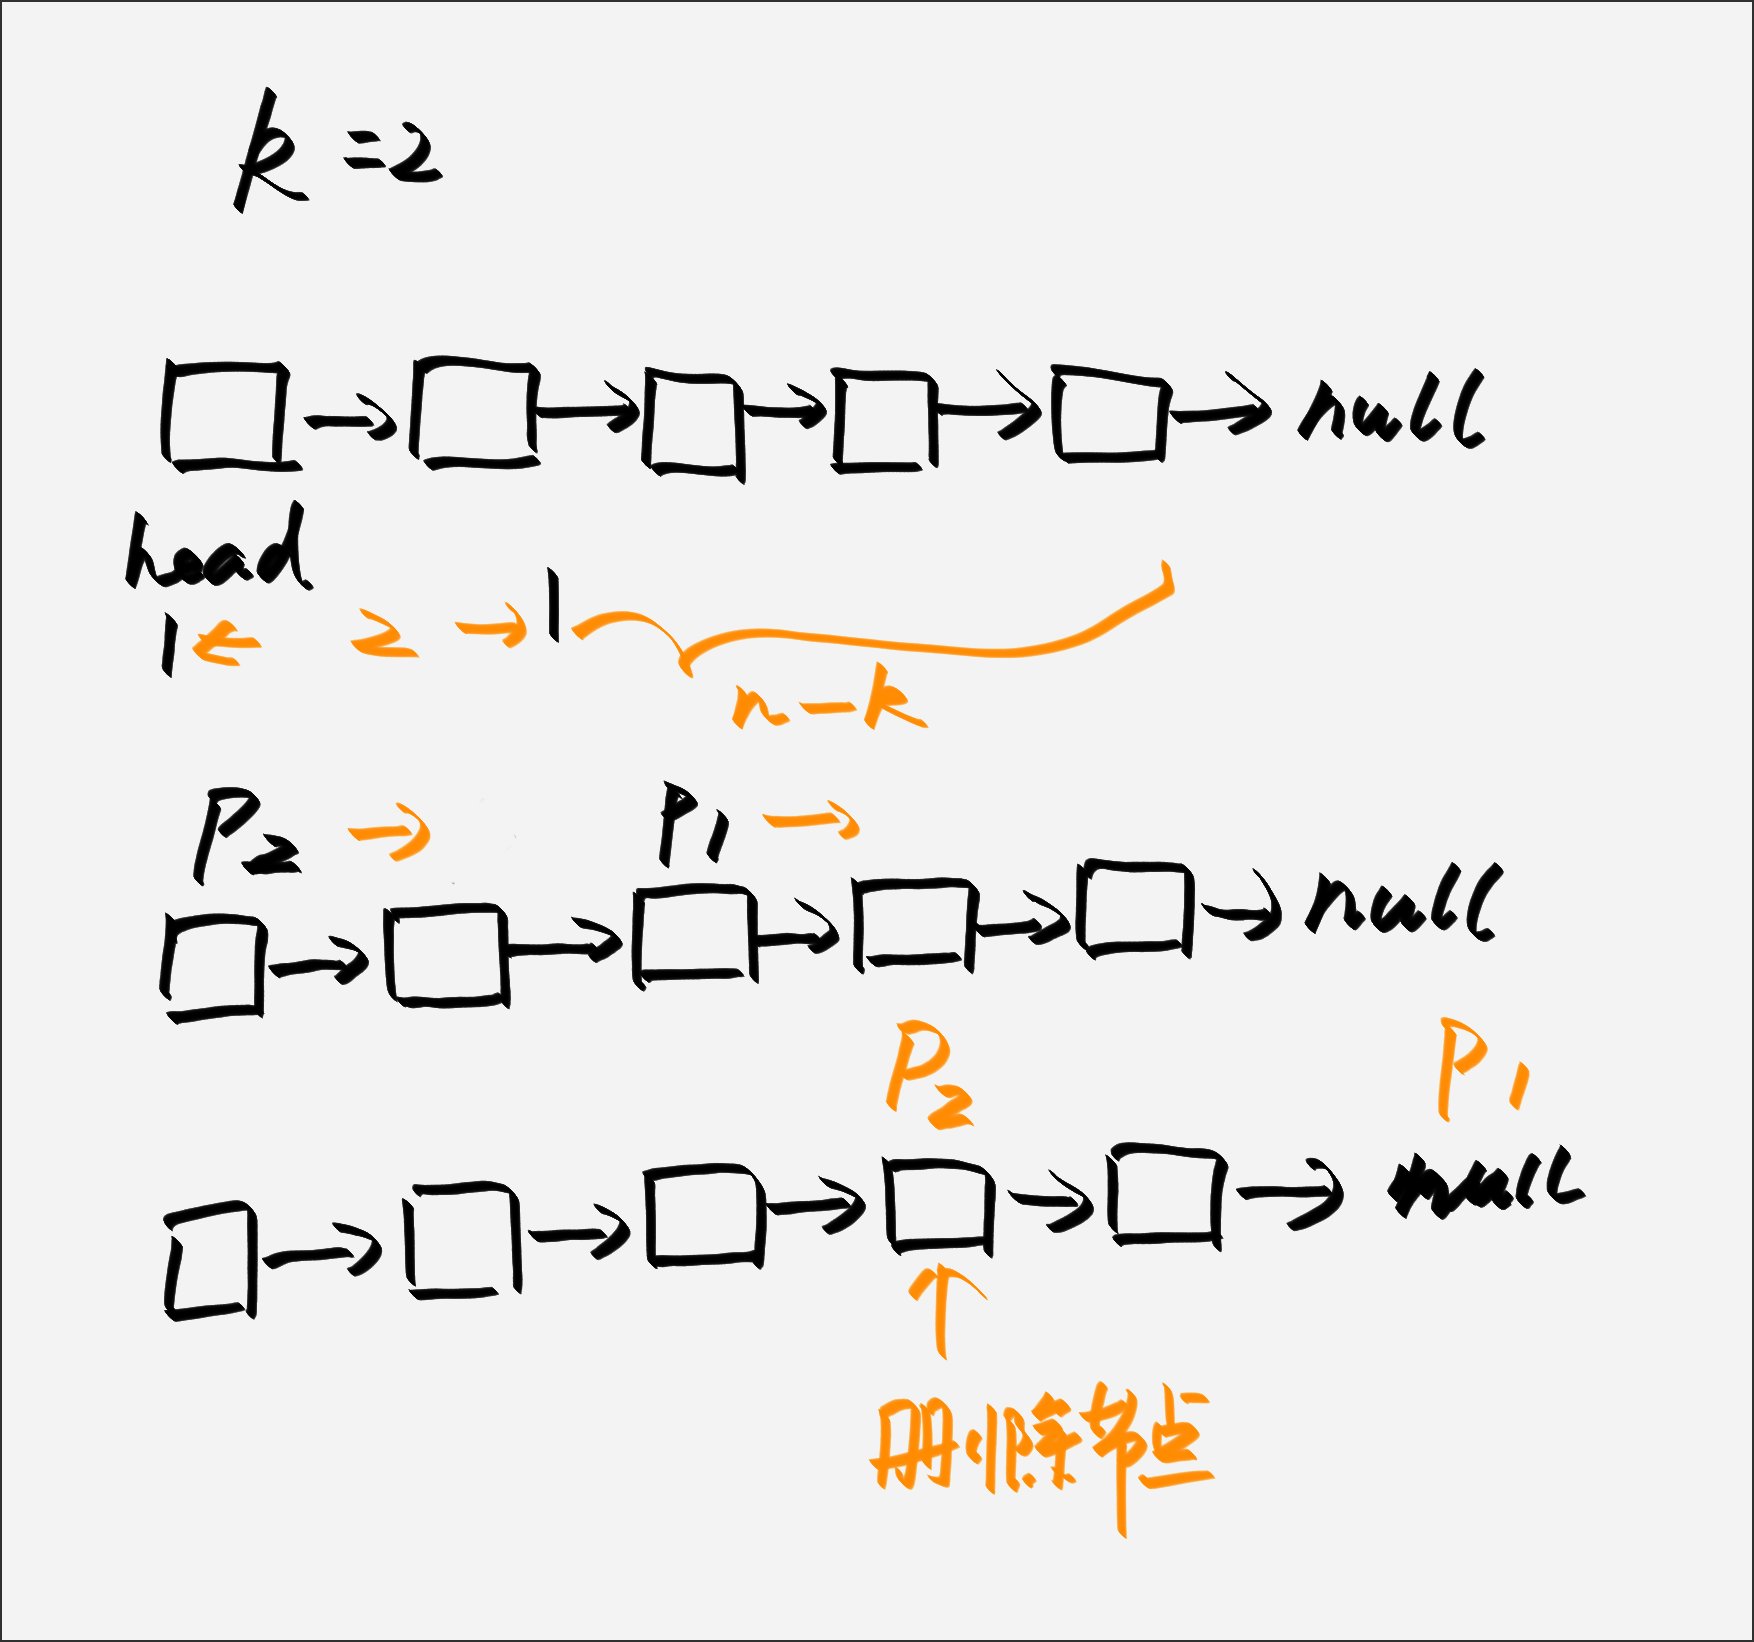 k=2
null
head
2
n-k
P2 P1
null
P2 P1
null
删除节点